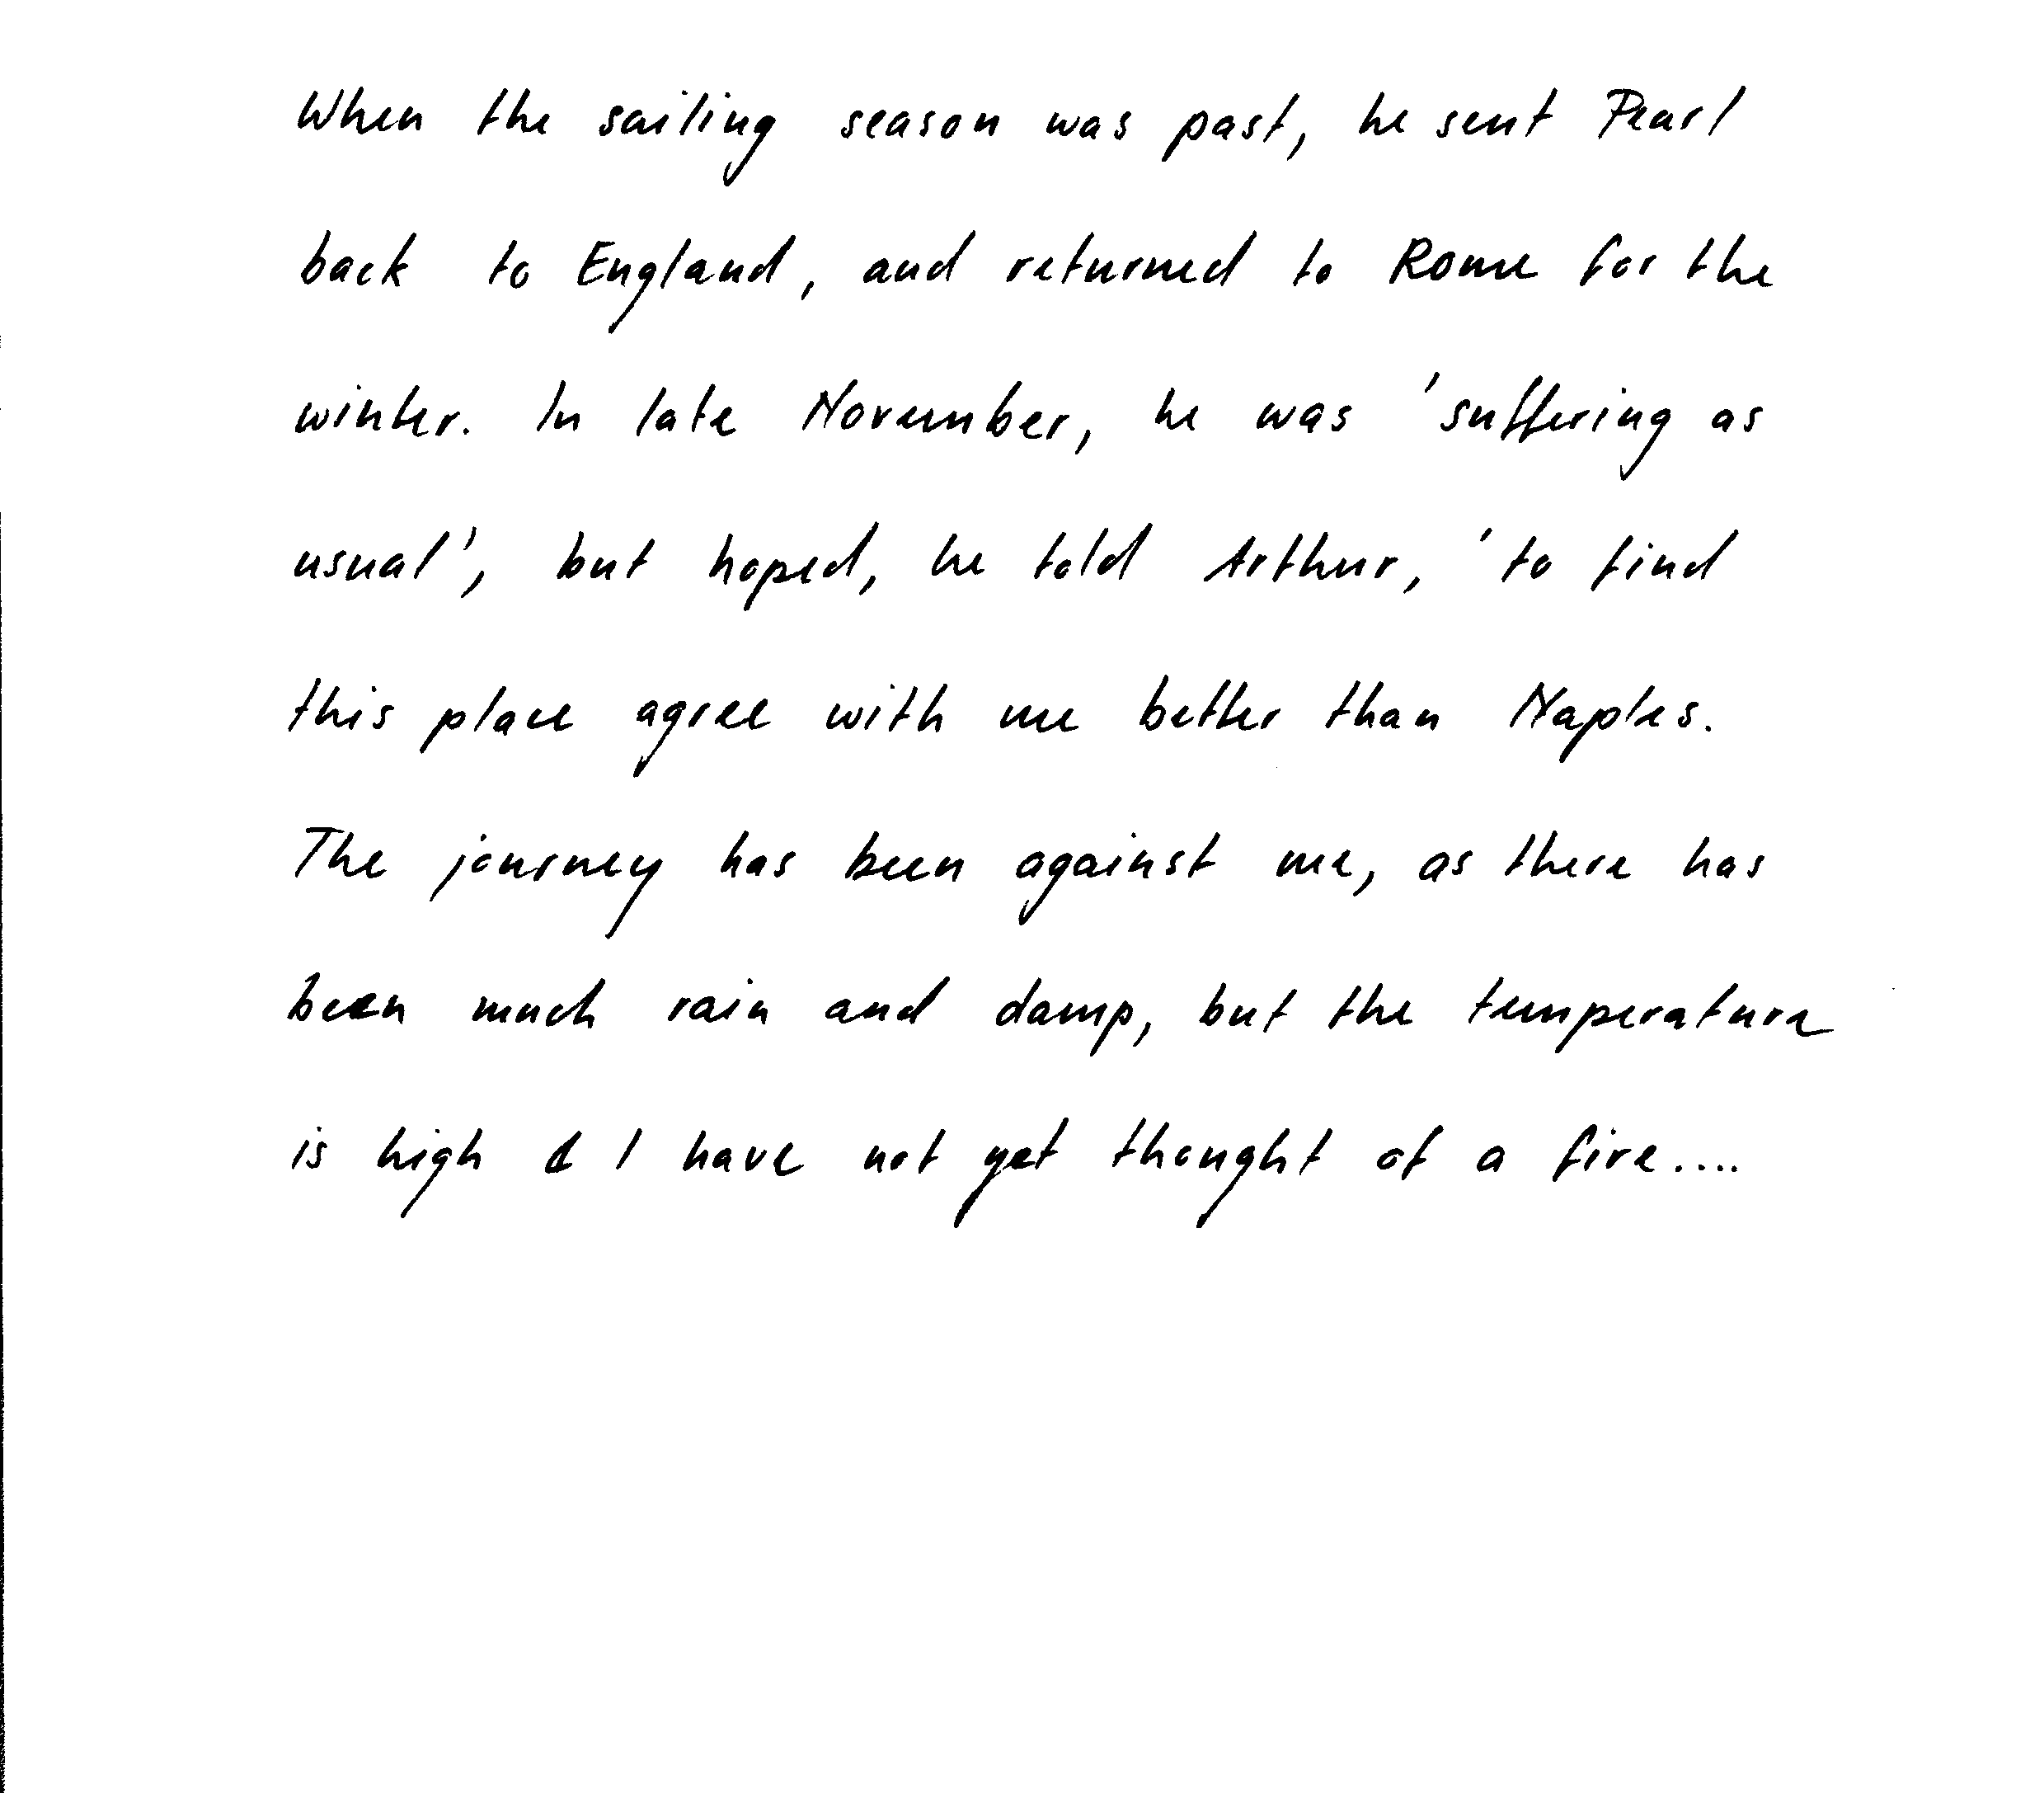 When the sailing season was past, he sent Pearl
back to England, and returned to Rome for the
winter. In late November, he was 'suffering as
usual', but hoped, he told Arthur, 'to find
this place agree with me better than Naples.
The journey has been against me, as there has
been much rain and damp, but the temperature
is high & I have not yet thought of a fire....